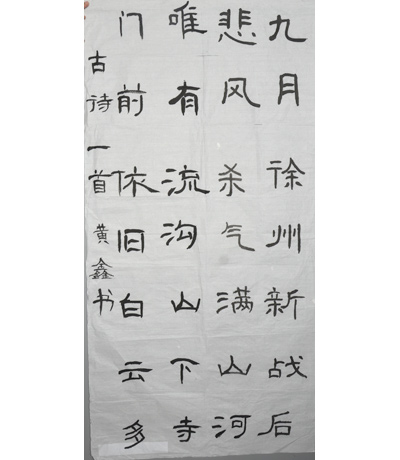 九月徐州新战后
悲风杀气满山河
唯有流沟山下寺
门前依旧白云多
古诗一首 黄鑫书